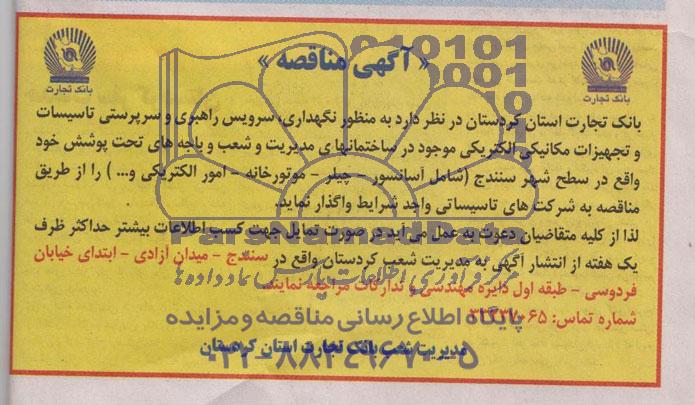 « آگهی مناقصه »
بانک تجارت
بانک تجارت
بانک تجارت استان کردستان در نظر دارد به منظور نگهداری، سرویس راهبری و سرپرستی تاسیسات
و تجهیزات مکانیکی الکتریکی موجود در ساختمانهای مدیریت و شعب و باجه های تحت پوشش خود
واقع در سطح شهر سنندج (شامل آسانسور - چیلر - موتورخانه - امور الکتریکی و... ) را از طریق
مناقصه به شرکت های تاسیساتی واجد شرایط واگذار نماید.
لذا از کلیه متقاضیان دعوت به عمل می آید در صورت تمایل جهت کسب اطلاعات بیشتر حداکثر ظرف
یک هفته از انتشار آگهی به مدیریت شعب کردستان واقع در سنندج - میدان آزادی - ابتدای خیابان
فردوسی - طبقه اول دایره مهندسی و تدارکات مراجعه نمایند.
شماره تماس:
مدیریت شعب بانک تجارت استان کردستان
ParsNamadData
پایگاه اطلاع رسانی مناقصه و مزایده